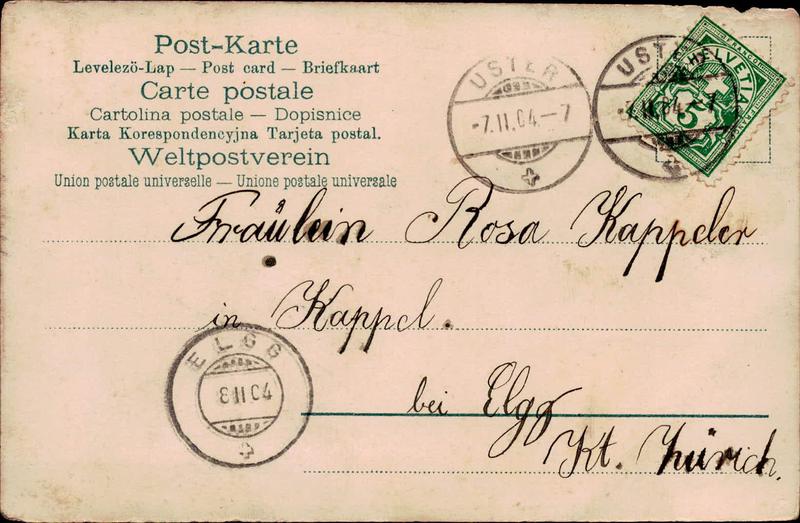 Post-Karte
Levelezö-Lap — Post card — Briefkaart
Carte postale
Cartolina postale — Dopisnice
Karta Korespondencyjna Tarjeta postal.
Weltpostverein
Union postale universelle — Unione postale universale
USTER
-7.II.04-7
USTER
-7.II.04-7
FRANCO
HELVETIA
5
Fräulein Rosa Kappeler
in Kappel.
bei Elgg
Kt. Zürich.
ELGG
8.II.04